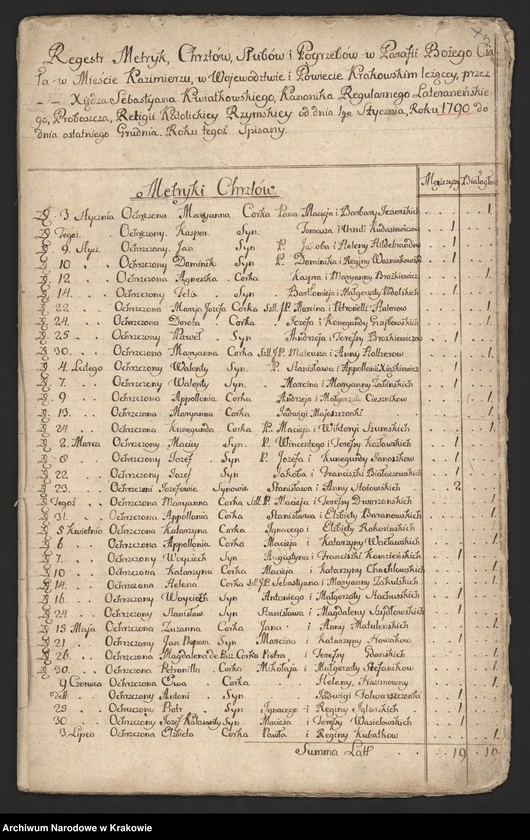 Regestr Metryk, Chrztów, Slubów i Pogrzebów w Parafii Bożego Cia-
ła w Mieście Kazimierzu, w Woiewództwie i Powiecie Krakowskim leżącey, przez
- - Xiędza Sebastyana Kwiatkowskiego, Kanonika Regularnego Lateraneńskie-
go, Proboszcza, Religii Katolickiey Rzymskiey od dnia 1go Stycznia, Roku 1790 do
dnia ostatniego Grudnia. Roku tegoż Spisany.
Metryki Chrztów
Męszczyzn Białogłow
D. 3 Stycznia Ochrzczona Maryanna Corka Pana Macieja i Barbary Jeziorskich 1
D. Tegoż Ochrzczony Kasper Syn Tomasza i Urszuli Kudasiewiczow 1
D. 9 Stycz. Ochrzczony Jan Syn P. Jakoba i Heleny Hildebrandow 1
D. 10 Ochrzczony Dominik Syn P. Dominika i Reginy Wozniakowski 1
D. 12 Ochrzczona Agneszka Corka Kaspra i Maryanny Brozkiewicz 1
D. 14 Ochrzczony Syn Bartłomieja i Małgorzaty Podolskich 1
D. 22 Ochrzczona Marya Jozefa Corka Marcina i Petronelli 1
D. 24 Ochrzczona Dorota Corka Jozefa i Kunegundy 1
D. 25 Ochrzczony Paweł Syn Andrzeja i Teresy Brozkiewiczow 1
D. 30 Ochrzczona Maryanna Corka Mateusza i Anny Holtzerow 1
D. 4 Lutego Ochrzczony Walenty Syn P. Stanisława i Appollonii 1
D. 7 Ochrzczony Walenty Syn Marcina i Maryanny 1
D. 9 Ochrzczona Appollonia Corka Andrzeja i Małgorzaty Ciesznikow 1
D. 13 Ochrzczona Maryanna Corka Jadwigi Majeszczonki 1
D. 24 Ochrzczona Kunegunda Corka P. Macieja i Wiktoryi Szumskich 1
D. 2 Marca Ochrzczony Maciey Syn P. Wincentego i Teresy Kozłowskich 1
D. 8 Ochrzczony Jozef Syn P. Jozefa i Kunegundy Janoszkow 1
D. 22 Ochrzczony Jozef Syn Jakoba i Franciszki Białaczewskich 1
D. 23 Ochrzczeni Jozefowie Synowie Stanisława i Anny Stołowskich 2
D. Tegoż Ochrzczona Maryanna Corka P. Macieja i Teresy Dworzonskich 1
D. 31 Ochrzczona Appollonia Corka Stanisława i Elżbiety Baranowskich 1
D. 5 Kwietnia Ochrzczona Katarzyna Corka Ignacego i Elżbiety Rokosinskich 1
D. 6 Ochrzczona Appollonia Corka Macieja i Katarzyny Wacławskich 1
D. 7 Ochrzczony Woyciech Syn Augustyna i Franciszki 1
D. 10 Ochrzczona Katarzyna Corka Macieja i Katarzyny Chachlowskich 1
D. 14 Ochrzczona Helena Corka Sebastyana i Maryanny Zakulskich 1
D. 16 Ochrzczony Woyciech Syn Antoniego i Małgorzaty Stachurskich 1
D. 24 Ochrzczony Stanisław Syn Stanisława i Magdaleny Szydłowskich 1
D. 15 Maja Ochrzczona Zuzanna Corka Jana i Anny Matulenskich 1
D. 21 Ochrzczony Jan Nepom. Syn Marcina i Katarzyny Nowakow 1
D. 26 Ochrzczona Magdalena de Paz. Corka Piotra i Teresy Gdanskich 1
D. 30 Ochrzczona Petronilla Corka Mikołaja i Małgorzaty Stefanikow 1
9 Czerwca Ochrzczona Ewa Corka Heleny Kazimowny 1
Ochrzczony Antoni Syn Jadwigi Folwarszczonki 1
29 Ochrzczony Piotr Syn Ignacego i Reginy Iglarskich 1
30 Ochrzczony Jozef Kalasanty Syn Macieja i Teresy Wasielowskich 1
3 Lipca Ochrzczona Elzbieta Corka Pawła i Reginy Kubatkow 1
Summa Latt 19
Archiwum Narodowe w Krakowie